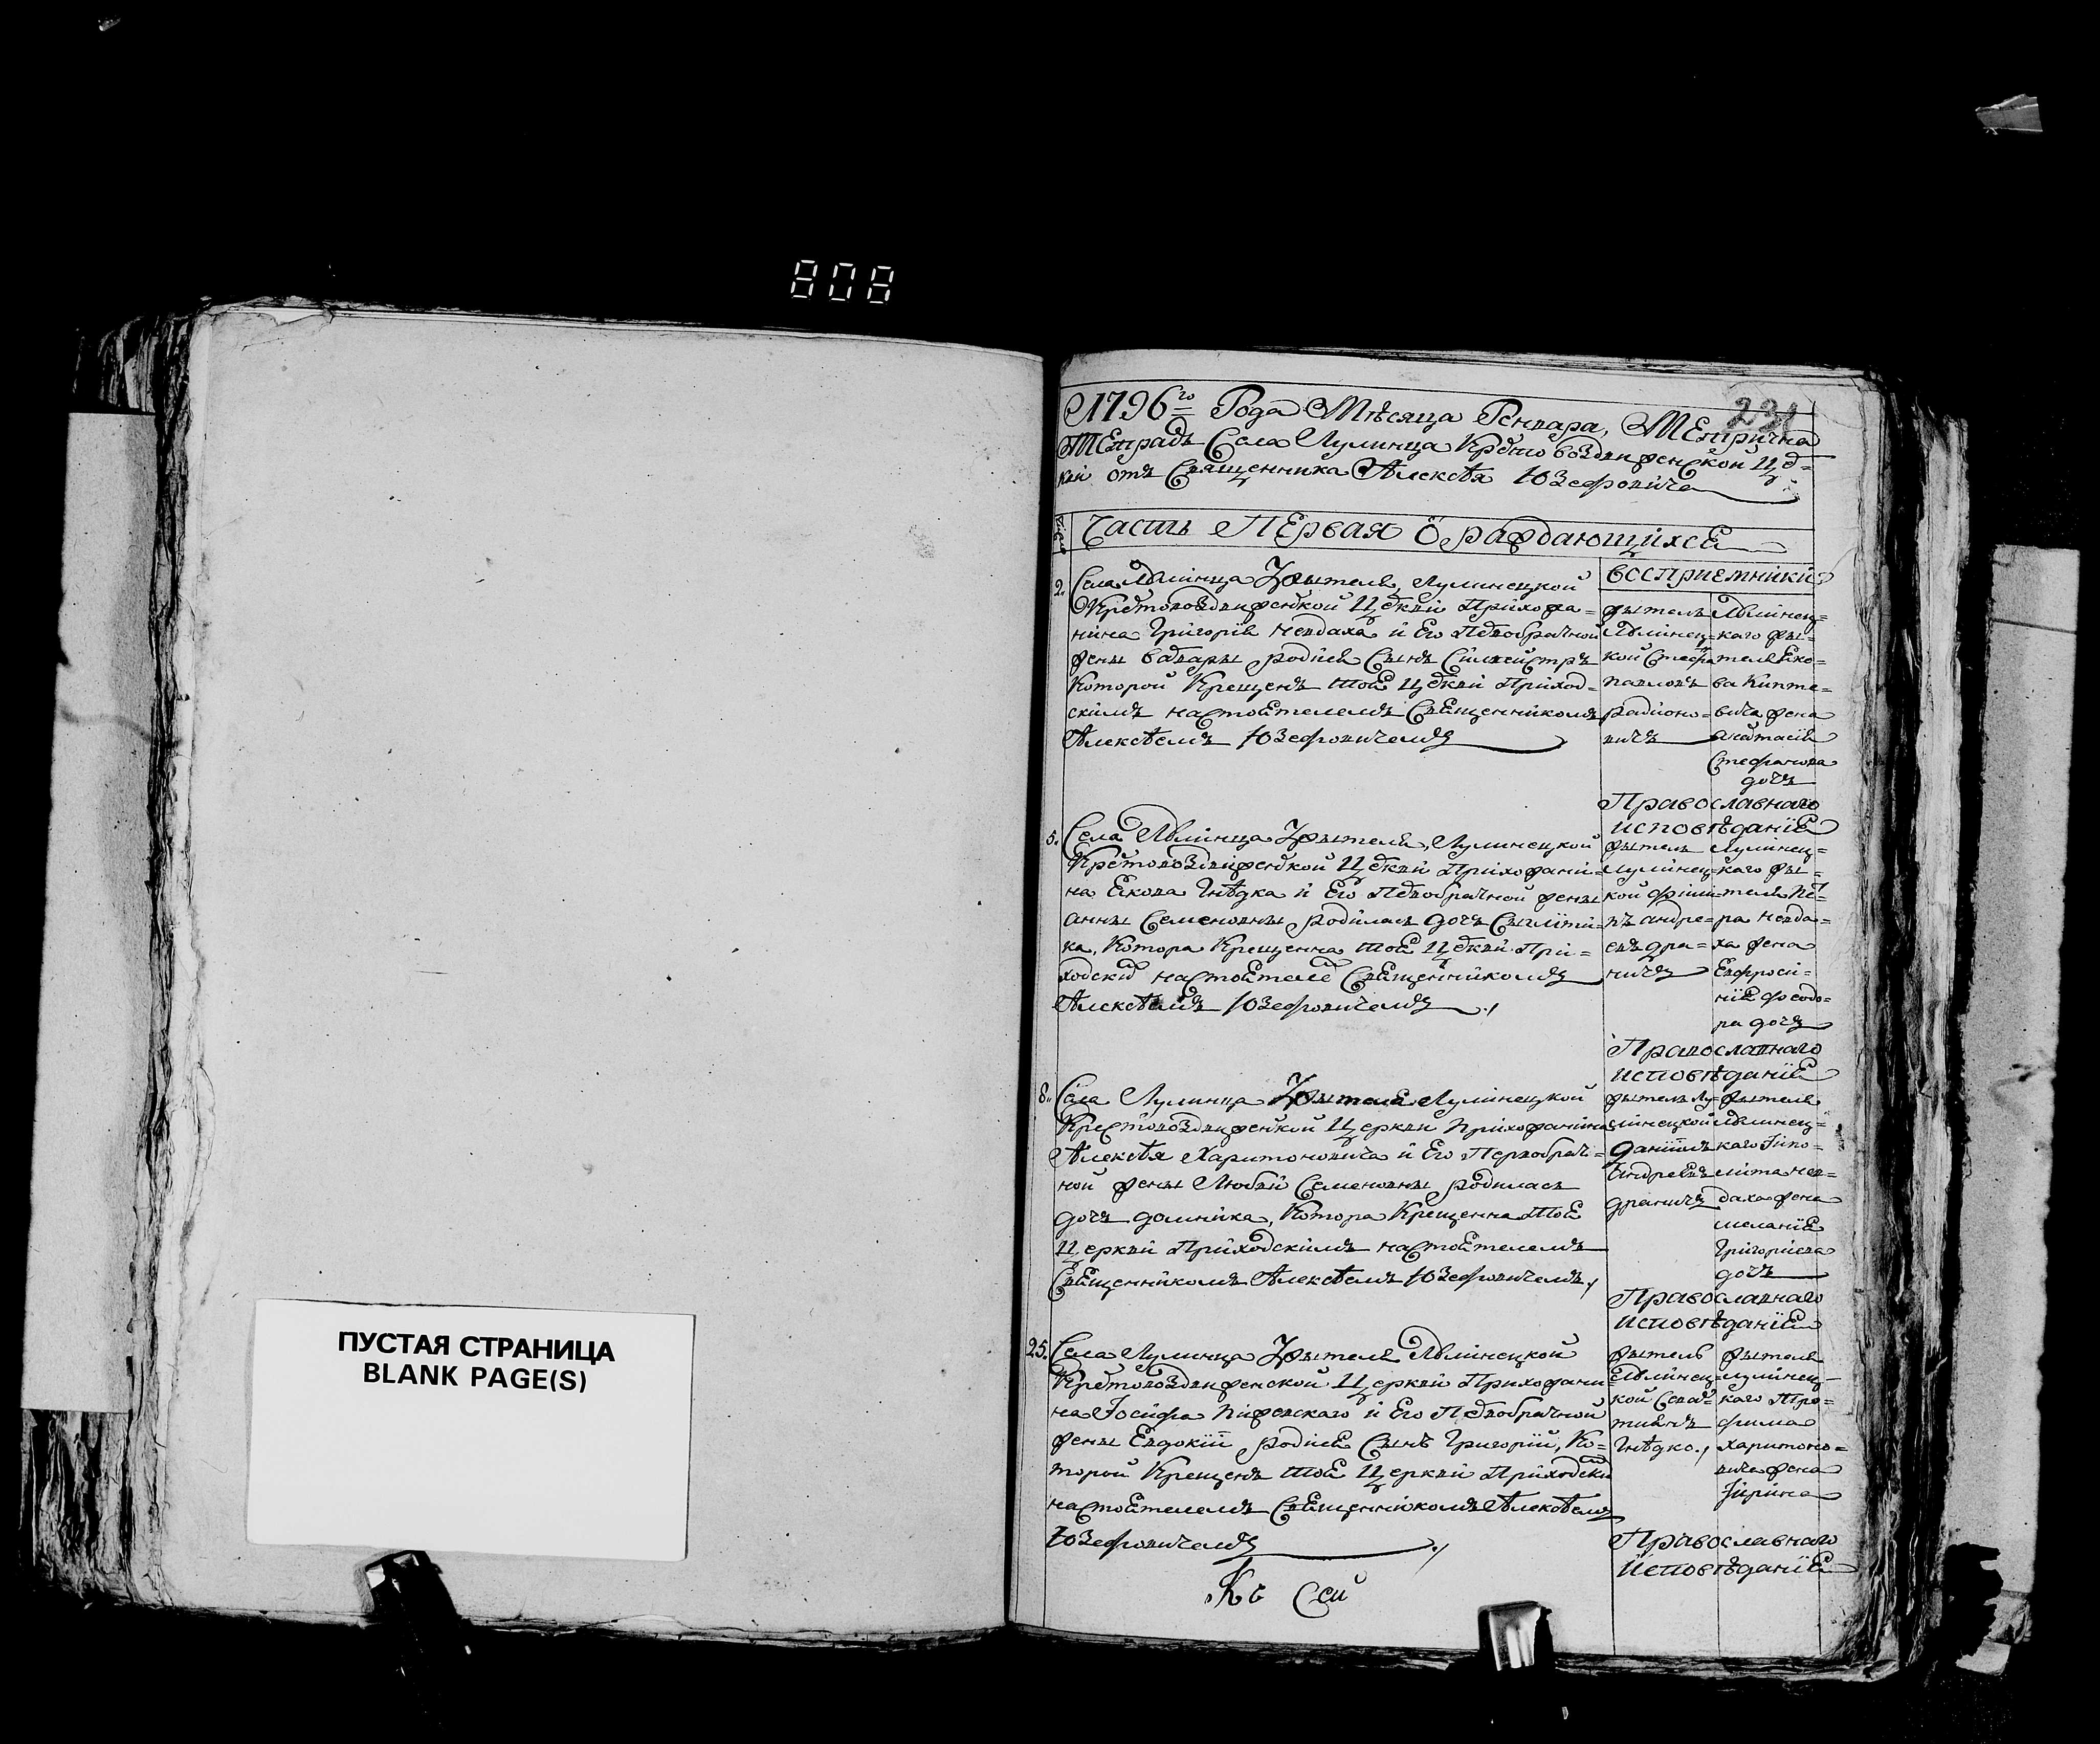 808
ПУСТАЯ СТРАНИЦА
BLANK PAGE(S)
231
1796го Года Мѣсяца Генвара, Метрична
Тетрадь Села Лулинца Крестовоздвиженской Цер=
кви отъ Священника Алексѣя Юзефовича
Часть Первая О раждающихся
Восприемники
2. Села Лулинца Жытеля, Лулинецкой
Крестовоздвиженской Церкви Прихожа=
нина Григорія Невдаха и Его Первобрачной
жены Варвары родися Сынъ Сілвестръ
Которой Крещенъ тоя Церкви Приход=
скимъ настоятелемъ Священникомъ
Алексѣемъ Юзефовичемъ
жытель
Лулинец=
кой Стефа
Павловъ
радионо=
вичъ
Лулинец=
каго жы=
теля Яко=
ва Кипте=
вича жена
Анастасія
Стефанова
дочъ
Православнаго
исповѣданія
5. Села Лулинца Жытеля, Лулинецкой
Крестовоздвиженской Церкви Прихожани=
на Якова Гнѣдка и Его Первобрачной жены
Анны Семеновны родилась дочъ
ка, Котора Крещенна тоя Церкви При=
ходским настоятелем Священникомъ
Алексѣемъ Юзефовичемъ
жытель
Лулинец=
кой Фили=
пъ андре=
евъ дра=
ничъ
Лулинец=
каго жы=
теля Пет
ра Невда=
ха жена
Евфроси=
нія феодо=
ра дочъ
Православнаго
исповѣданія
8. Села Лулинца Жытеля Лулинецкой
Крестовоздвиженской Церкви Прихожанина
Алексѣя Харитоновича и Его Первобрач=
ной жены Любви Семеновны родилась
дочъ домника, Котора Крещенна Тоя
Церкви Приходскимъ настоятелемъ
Священникомъ Алексѣемъ Юзефовичемъ
жытель Лу=
линецкой
Даніилъ
Андреевъ
драничъ
жытеля
Лулинец=
каго Іпо=
лита нев=
даха жена
меланія
Григориева
дочъ
Православнаго
исповѣданія
25. Села Лулинца Жытеля Лулинецкой
Крестовоздвиженской Церкви Прихожани
на Іосифа Нижевскаго и Его Первобрачной
жены Евдокіи родися Сынъ Григорій, Ко=
торой Крещенъ тоя Церкви Приходским
настоятелемъ Священникомъ Алексѣемъ
Юзефовичемъ
жытель
Лулинец=
кой Севас=
тиянъ
Гнѣдко
жытеля
Лулинец=
каго Тро=
фима
харитоно=
вича жена
Ірина
Православнаго
Исповѣданія
Къ Сей